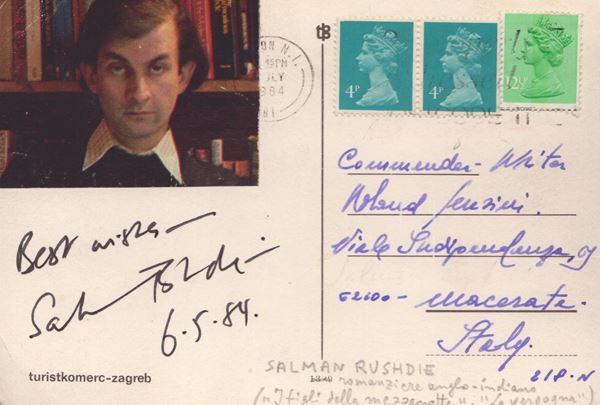 Best wishes
Salman Rushdie
6.5.84.
turistkomerc-zagreb
ON N.1.
15PM
JLY
1984
4P
4P
12½P
Commender - Writer
Viale Indipendenza,
62100 - Macerata.
Italy.
SALMAN RUSHDIE
romanziere anglo-indiano
("I figli della mezzanotte", "La vergogna")
218-N